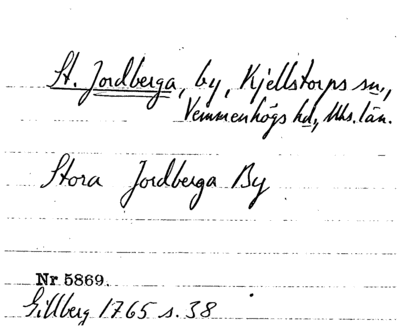 St. Jordberga, by, Kjellstorps sn.,
Vemmenhögs hd., Mhs. län.
Stora Jordberga By
Nr 5869.
Gillberg 1765 s. 38